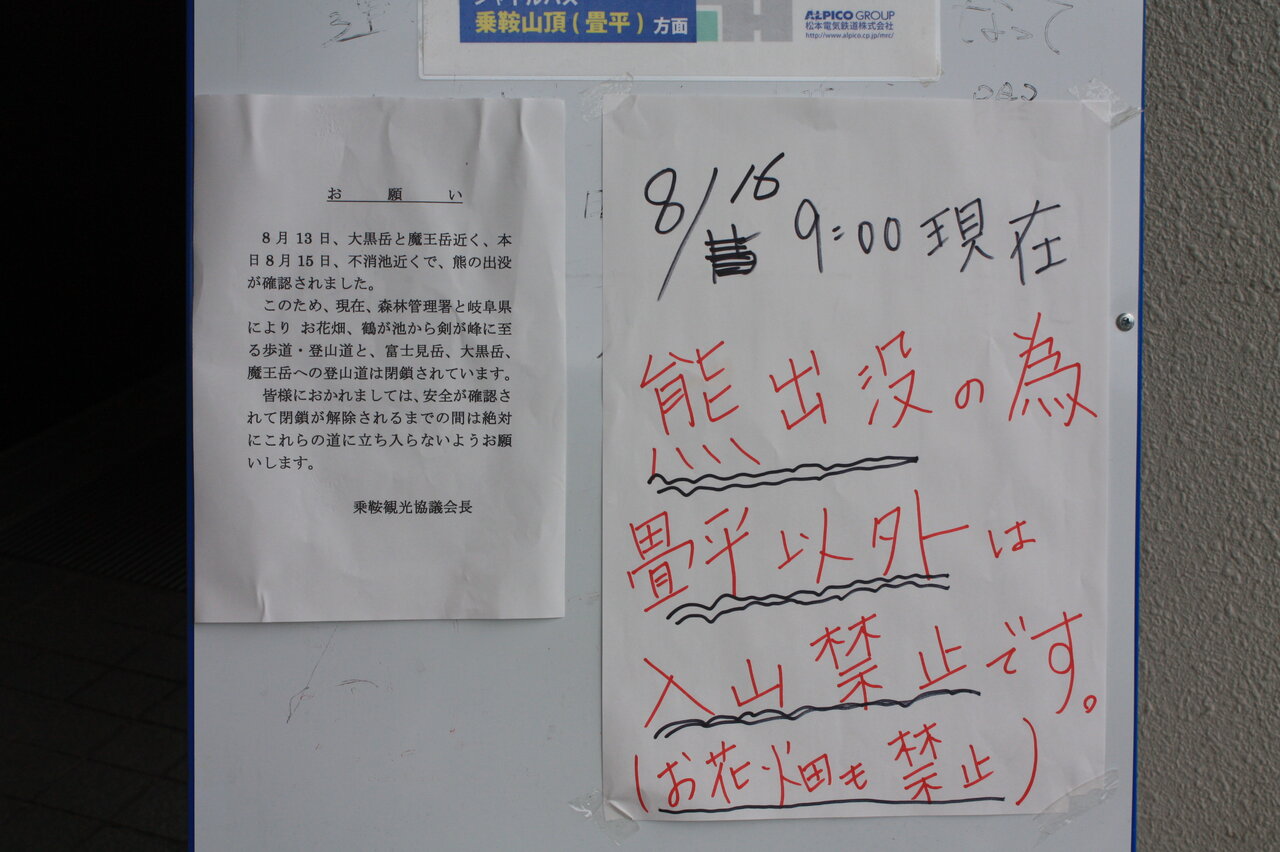 シャトルバス
乗鞍山頂(畳平)方面
ALPICO GROUP
松本電気鉄道株式会社
http://www.alpico.cp.jp/mrc/
なって
お願い
8月13日、大黒岳と魔王岳近く、本
日8月15日、不消池近くで、熊の出没
が確認されました。
このため、現在、森林管理署と岐阜県
により お花畑、鶴が池から剣が峰に至
る歩道・登山道と、富士見岳、大黒岳、
魔王岳への登山道は閉鎖されています。
皆様におかれましては、安全が確認さ
れて閉鎖が解除されるまでの間は絶対
にこれらの道に立ち入らないようお願
いします。
乗鞍観光協議会長
8/16 9:00現在
熊出没の為
畳平以外は
入山禁止です。
(お花畑も禁止)